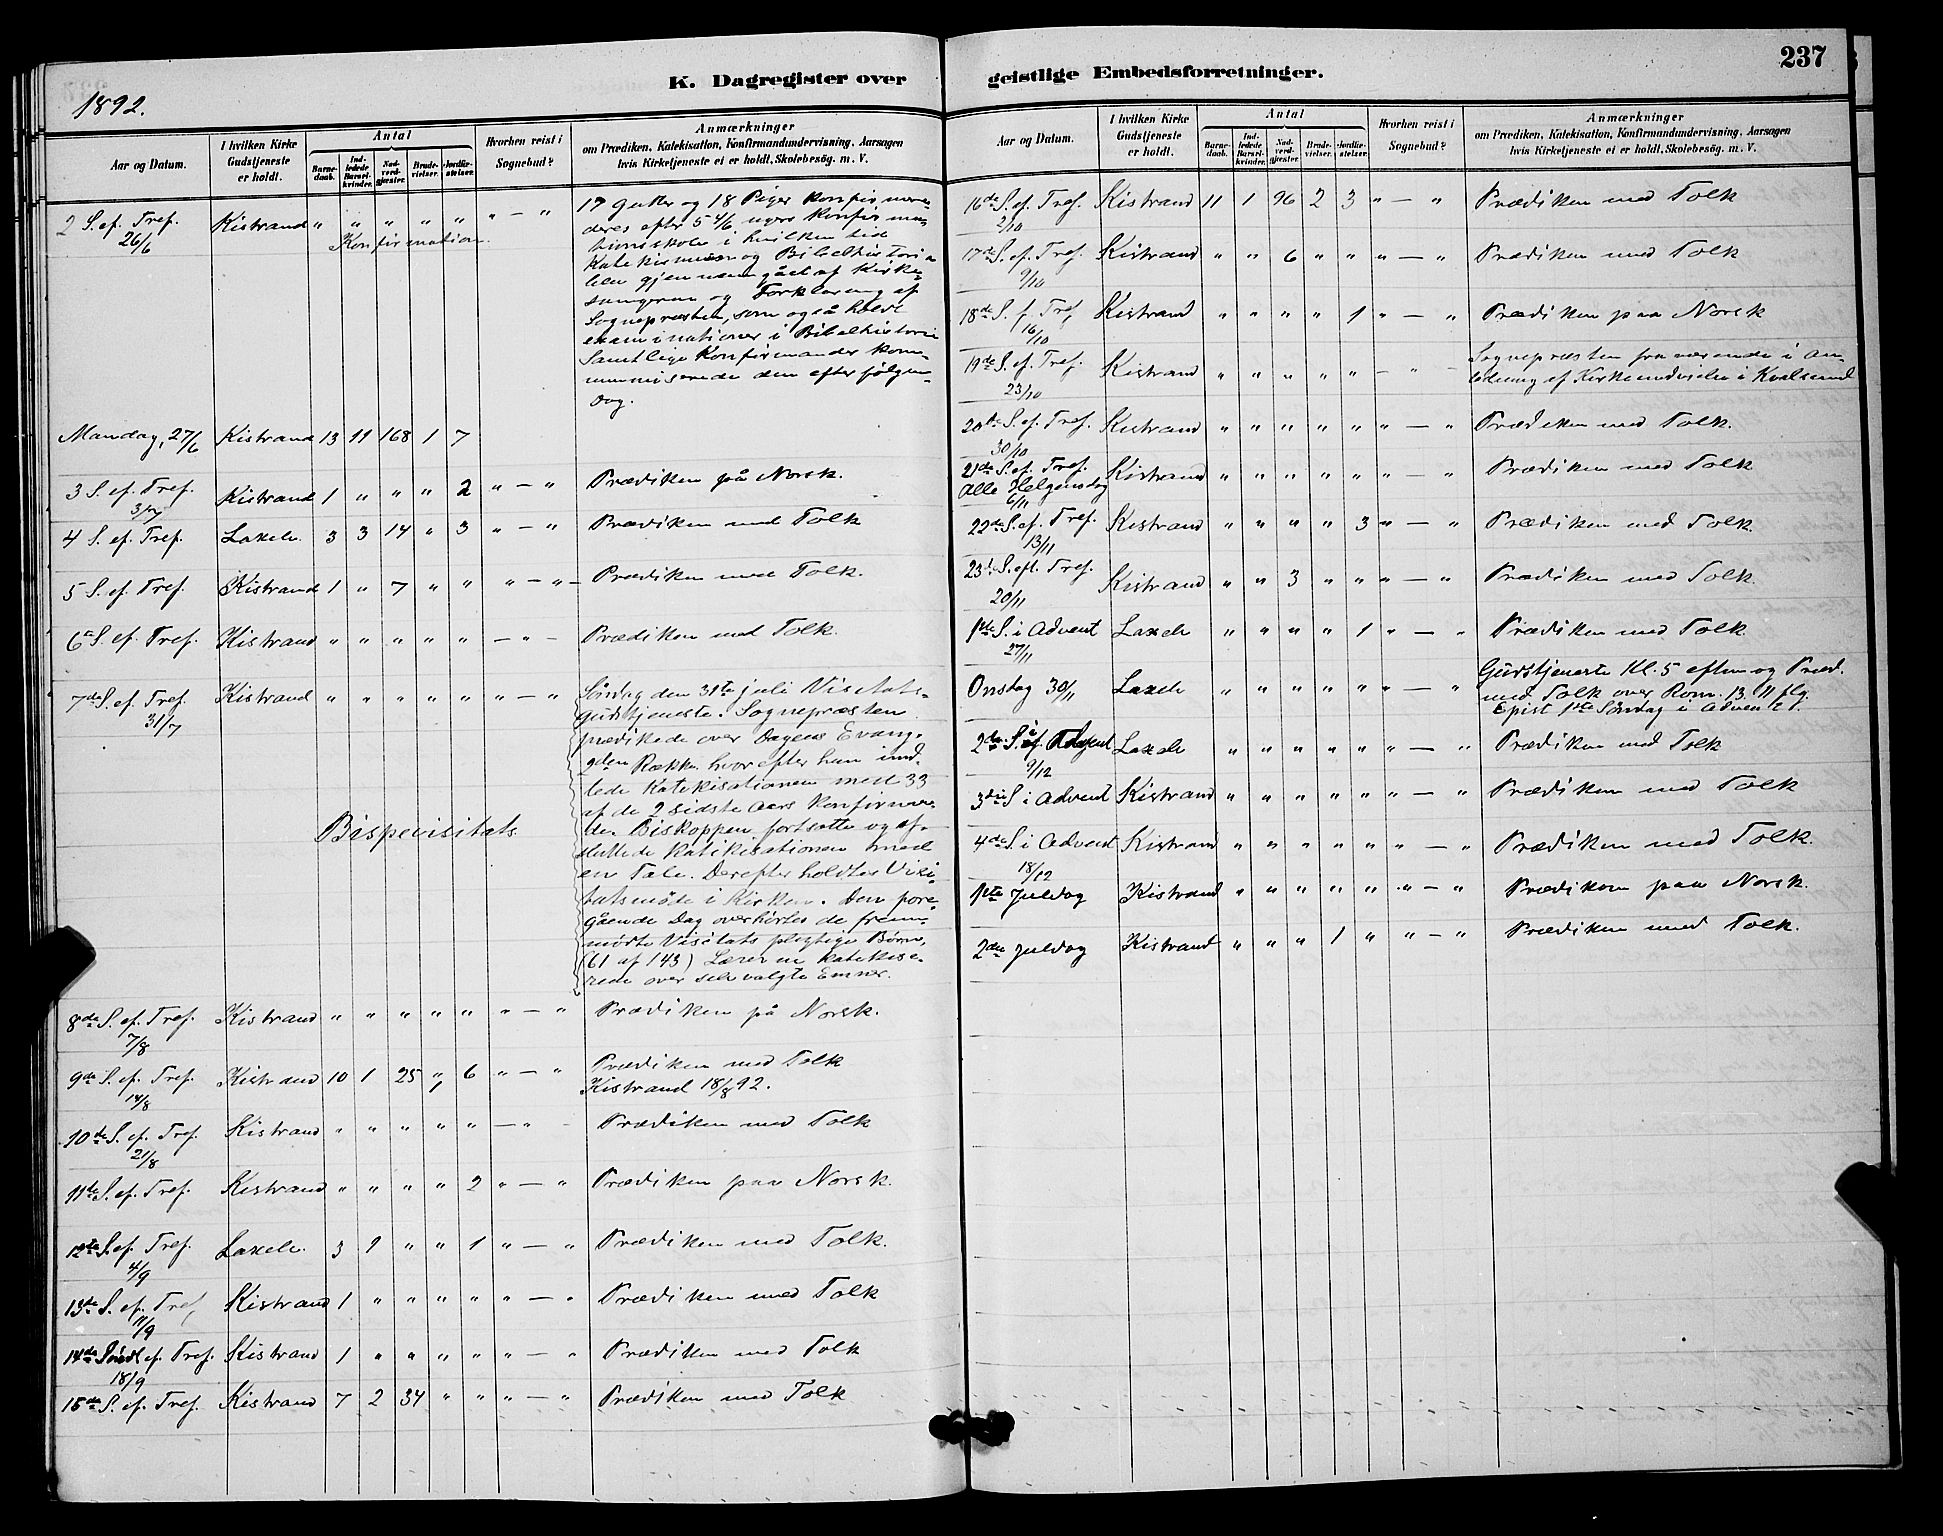 K. Dagregister over
1892.
Aar og Datum.
I hvilken Kirke Gudstjeneste er holdt.
Antal
Barne-daab.
Ind-ledede Barsel-kvinder.
Nad-verd-gjester.
Brude-vielser.
Jordfæ-stelser.
Hvorhen reist i Sognebud?
Anmærkninger
om Prædiken, Katekisation, Konfirmandundervisning, Aarsagen
hvis Kirketjeneste ei er holdt, Skolebesög. m. V.
2 S. ef. Tref. 26/6 Kistrand " " " " " " — "
Konfirmation.
17 Gutter og 18 Piger konfirmere-
deres efter 5 4/6 ugers Konfirma-
tionsskole i hvilken tid
Katekismen og Bibelhistori-
en blev gjennemgået af Kirke-
sangeren og Forklaring af
Sognepresten, som også holdt
examinationer i Bibelhistorie
Samtlige Konfirmander kom-
muniserede den efterfølgen-
Dag.
Mandag, 27/6 Kistrand 13 11 168 1 7
3 S. ef. Tref. 3/7 Kistrand 1 " " " 2 " — " Prædiken på Norsk.
4 S. ef. Tref. Laxelv. 3 3 14 " 3 " — " Prædiken med Tolk
5 S. ef. Tref. Kistrand 1 " 7 " " " — " Prædiken med Tolk.
6te S. ef. Tref. Kistrand " " " " " — " — Prædiken med Tolk.
7de S. ef. Tref. 31/7 Kistrand " " " " " " — "
Bispevisitats
Søndag den 31te juli Visitats-
gudstjeneste. Sognepræsten
prædikede over Dagens Evang.
2den Række. hvorefter han ind-
lede Katekisationen med 33
af de 2 sidste Aars Konfirmere-
de. Biskoppen fortsatte og af-
sluttede Katekisationen med
en Tale. Derefter holdtes Visi-
tatsmöde i Kirken. Den fore-
gående Dag overhörtes de frem-
mödte Visitats pligtige Børn,
(61 af 143) Læreren katekise-
rede over selvvalgte Emner.
8de S. ef. Tref. 7/8 Kistrand " " " " " " — " Prædiken på Norsk.
9de S. ef. Tref. 14/8 Kistrand 10 1 25 " 6 " — " Prædiken med Tolk
Kistrand 18/8 92.
10de S. ef. Tref. 21/8 Kistrand " " " " " — " - Prædiken med Tolk
11te S. ef. Tref. Kistrand " " " " 2 " — " Prædiken paa Norsk.
12te S. ef. Tref. 4/9 Laxelv. 3 9 " " 1 " — " Prædiken med Tolk.
13de S. ef. Tref. 11/9 Kistrand 1 " " " " " — " Prædiken med Tolk
14de Sönd. ef. Tref. 18/9 Kistrand 1 " " " " " — " Prædiken med Tolk
15de S. ef. Tref. Kistrand 7 2 34 " " " — " Prædiken med Tolk
geistlige Embedsforretninger.
237
Aar og Datum.
I hvilken Kirke Gudstjeneste er holdt.
Antal
Barne-daab.
Ind-ledede Barsel-kvinder.
Nad-verd-gjester.
Brude-vielser.
Jordfæ-stelser.
Hvorhen reist i Sognebud?
Anmærkninger
om Prædiken, Katekisation, Konfirmandundervisning, Aarsagen
hvis Kirketjeneste ei er holdt, Skolebesög. m. V.
16de S. ef. Tref. 2/10 Kistrand 11 1 96 2 3 " — " Prædiken med Tolk
17de S. ef. Tref. 9/10 Kistrand " " 6 " " " — " Prædiken med Tolk
18de S. f. Tref. 16/10 Kistrand " " " " 1 " — " Prædiken paa Norsk
19de S. ef. Tref. 23/10 Kistrand " " " " " — " — Sognepræsten fraværende i an-
ledning af Kirkeindvielse i Kvalsund
20de S. ef. Tref. 30/10 Kistrand " " " " " " — " Prædiken med Tolk.
21de S. ef. Tref. Alle Helgensdag 6/11 Kistrand " " " " " " — " Prædiken med Tolk
22de S. ef. Tref. 13/11 Kistrand " " " " 3 " — " Prædiken med Tolk.
23de S. eft. Tref. 20/11 Kistrand " " 3 " " " — " Prædiken med Tolk.
1ste S. i Advent 27/11 Laxelv " " " " 1 " — " Prædiken med Tolk
Onsdag 30/11 Laxelv " " " " " " — " Gudstjeneste Kl. 5 eftm og Præd.
med Tolk over Rom. 13. 11 flg.
Epist 1ste Söndag i Advent.
2den S. i Advent 9/12 Laxelv " " " " " " — " Prædiken med Tolk
3die S i Advent Kistrand " " " " " " — " Prædiken med Tolk
4de S i Advent 18/12 Kistrand " " " " " " — " Prædiken med Tolk.
1ste Juldag Kistrand " " " " " " — " Prædiken paa Norsk.
2den juldag Kistrand " " " 1 " " — " Prædiken med Tolk.